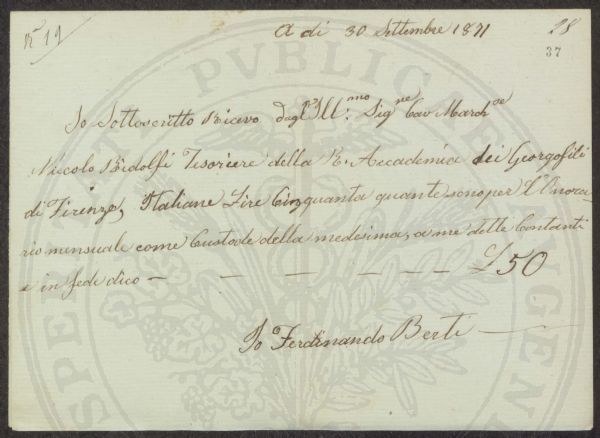 N° 19
A dì 30 Settembre 1871
28
37
Io Sottoscritto Ricevo dagl'Ill.mo Sig.re Cav March.se
Niccolo Ridolfi Tesoriere della R. Accademia dei Georgofili
di Firenze, Italiane Lire Cinquanta quante sono per l'Onora-
rio mensuale come Custode della medesima, a me dette Contanti
e in fede dico — — — — — — £50
Io Ferdinando Berti